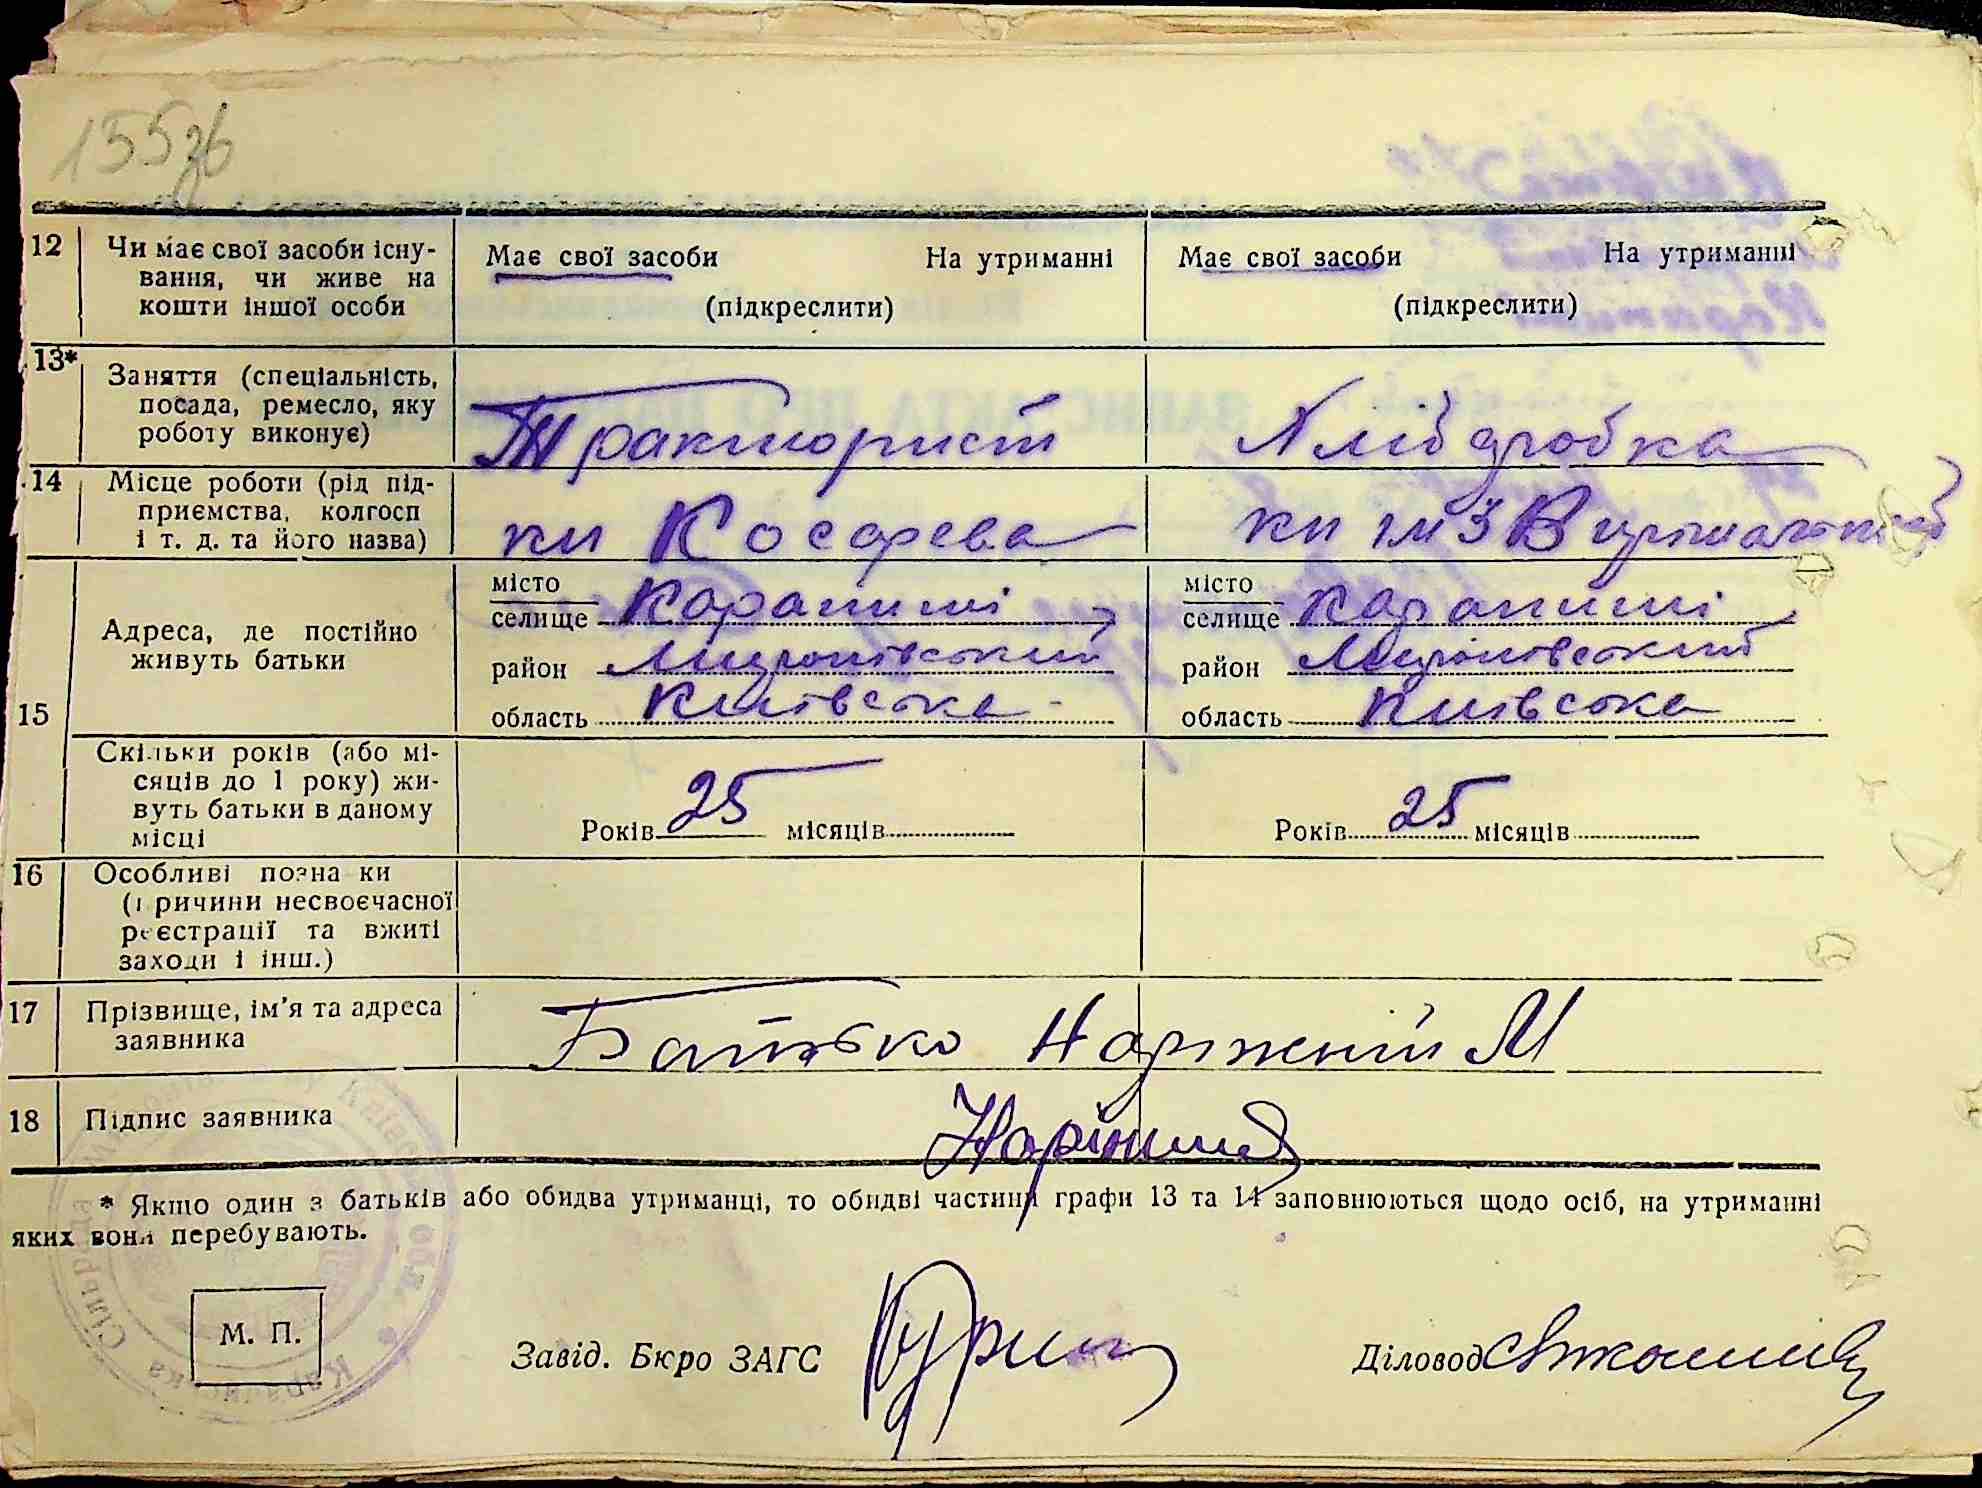 155зв
12 Чи має свої засоби існу-
вання, чи живе на
кошти іншої особи
Має свої засоби На утриманні
(підкреслити)
Має свої засоби На утриманні
(підкреслити)
13* Заняття (спеціальність,
посада, ремесло, яку
роботу виконує)
Тракторист
Хлібробка
14 Місце роботи (рід під-
приємства, колгосп
і т. д. та його назва)
кп Косарева
кп ім 3
15 Адреса, де постійно
живуть батьки
місто
селище Карапиші
район Миронівський
область Київська
місто
селище Карапиші
район Миронівський
область Київська
Скільки років (або мі-
сяців до 1 року) жи-
вуть батьки в даному
місці
Років 25 місяців
Років 25 місяців
16 Особливі позна ки
(причини несвоєчасної
реєстрації та вжиті
заходи і інш.)
17 Прізвище, ім'я та адреса
заявника
Батько Наріжній М
18 Підпис заявника
Наріжний
* Якщо один з батьків або обидва утриманці, то обидві частини графи 13 та 14 заповнюються щодо осіб, на утриманні
яких вони перебувають.
М. П.
Завід. Бюро ЗАГС
Діловод